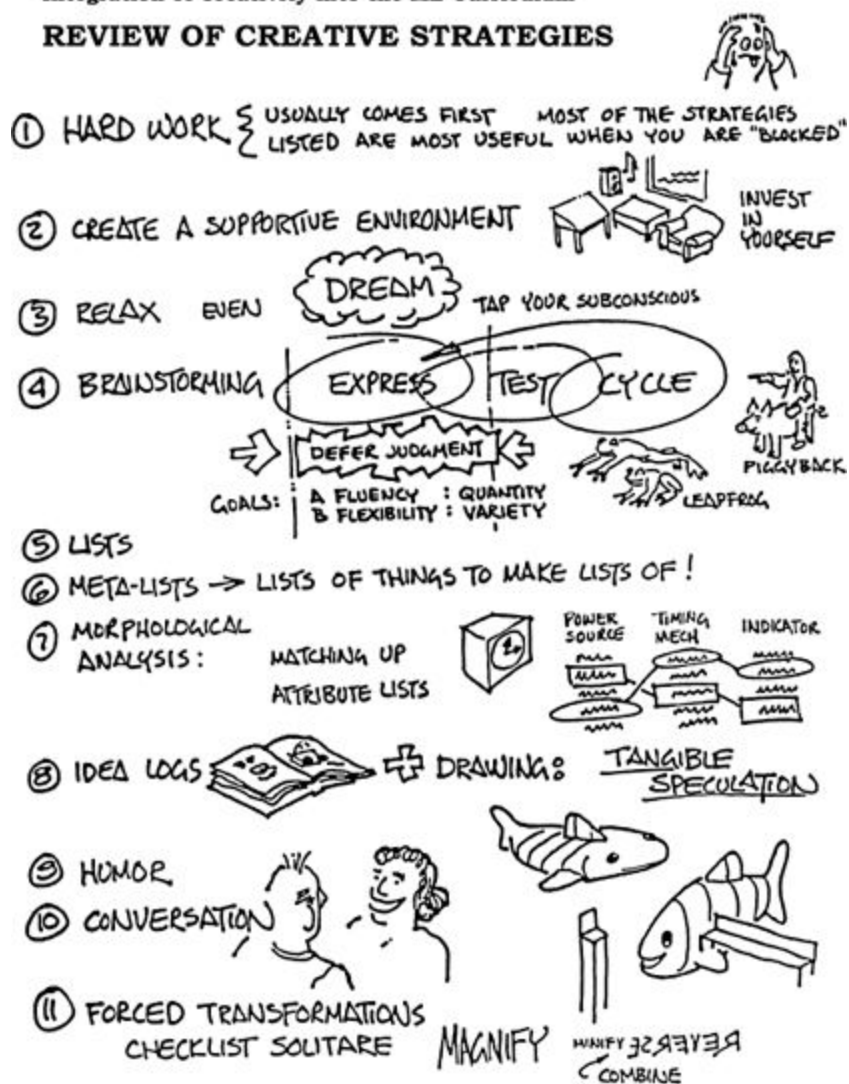 Integration of Creativity into the ME Curriculum
REVIEW OF CREATIVE STRATEGIES
1 HARD WORK { USUALLY COMES FIRST MOST OF THE STRATEGIES
LISTED ARE MOST USEFUL WHEN YOU ARE "BLOCKED"
2 CREATE A SUPPORTIVE ENVIRONMENT
INVEST
IN
YOURSELF
3 RELAX EVEN DREAM TAP YOUR SUBCONSCIOUS
4 BRAINSTORMING EXPRESS TEST CYCLE
DEFER JUDGMENT
GOALS: A FLUENCY : QUANTITY
B FLEXIBILITY : VARIETY
LEAPFROG
PIGGYBACK
5 LISTS
6 META-LISTS → LISTS OF THINGS TO MAKE LISTS OF !
7 MORPHOLOGICAL
ANALYSIS: MATCHING UP
ATTRIBUTE LISTS
POWER
SOURCE
TIMING
MECH
INDICATOR
8 IDEA LOGS + DRAWING: TANGIBLE
SPECULATION
9 HUMOR
10 CONVERSATION
11 FORCED TRANSFORMATIONS
CHECKLIST SOLITARE MAGNIFY MINIFY REVERSE
COMBINE